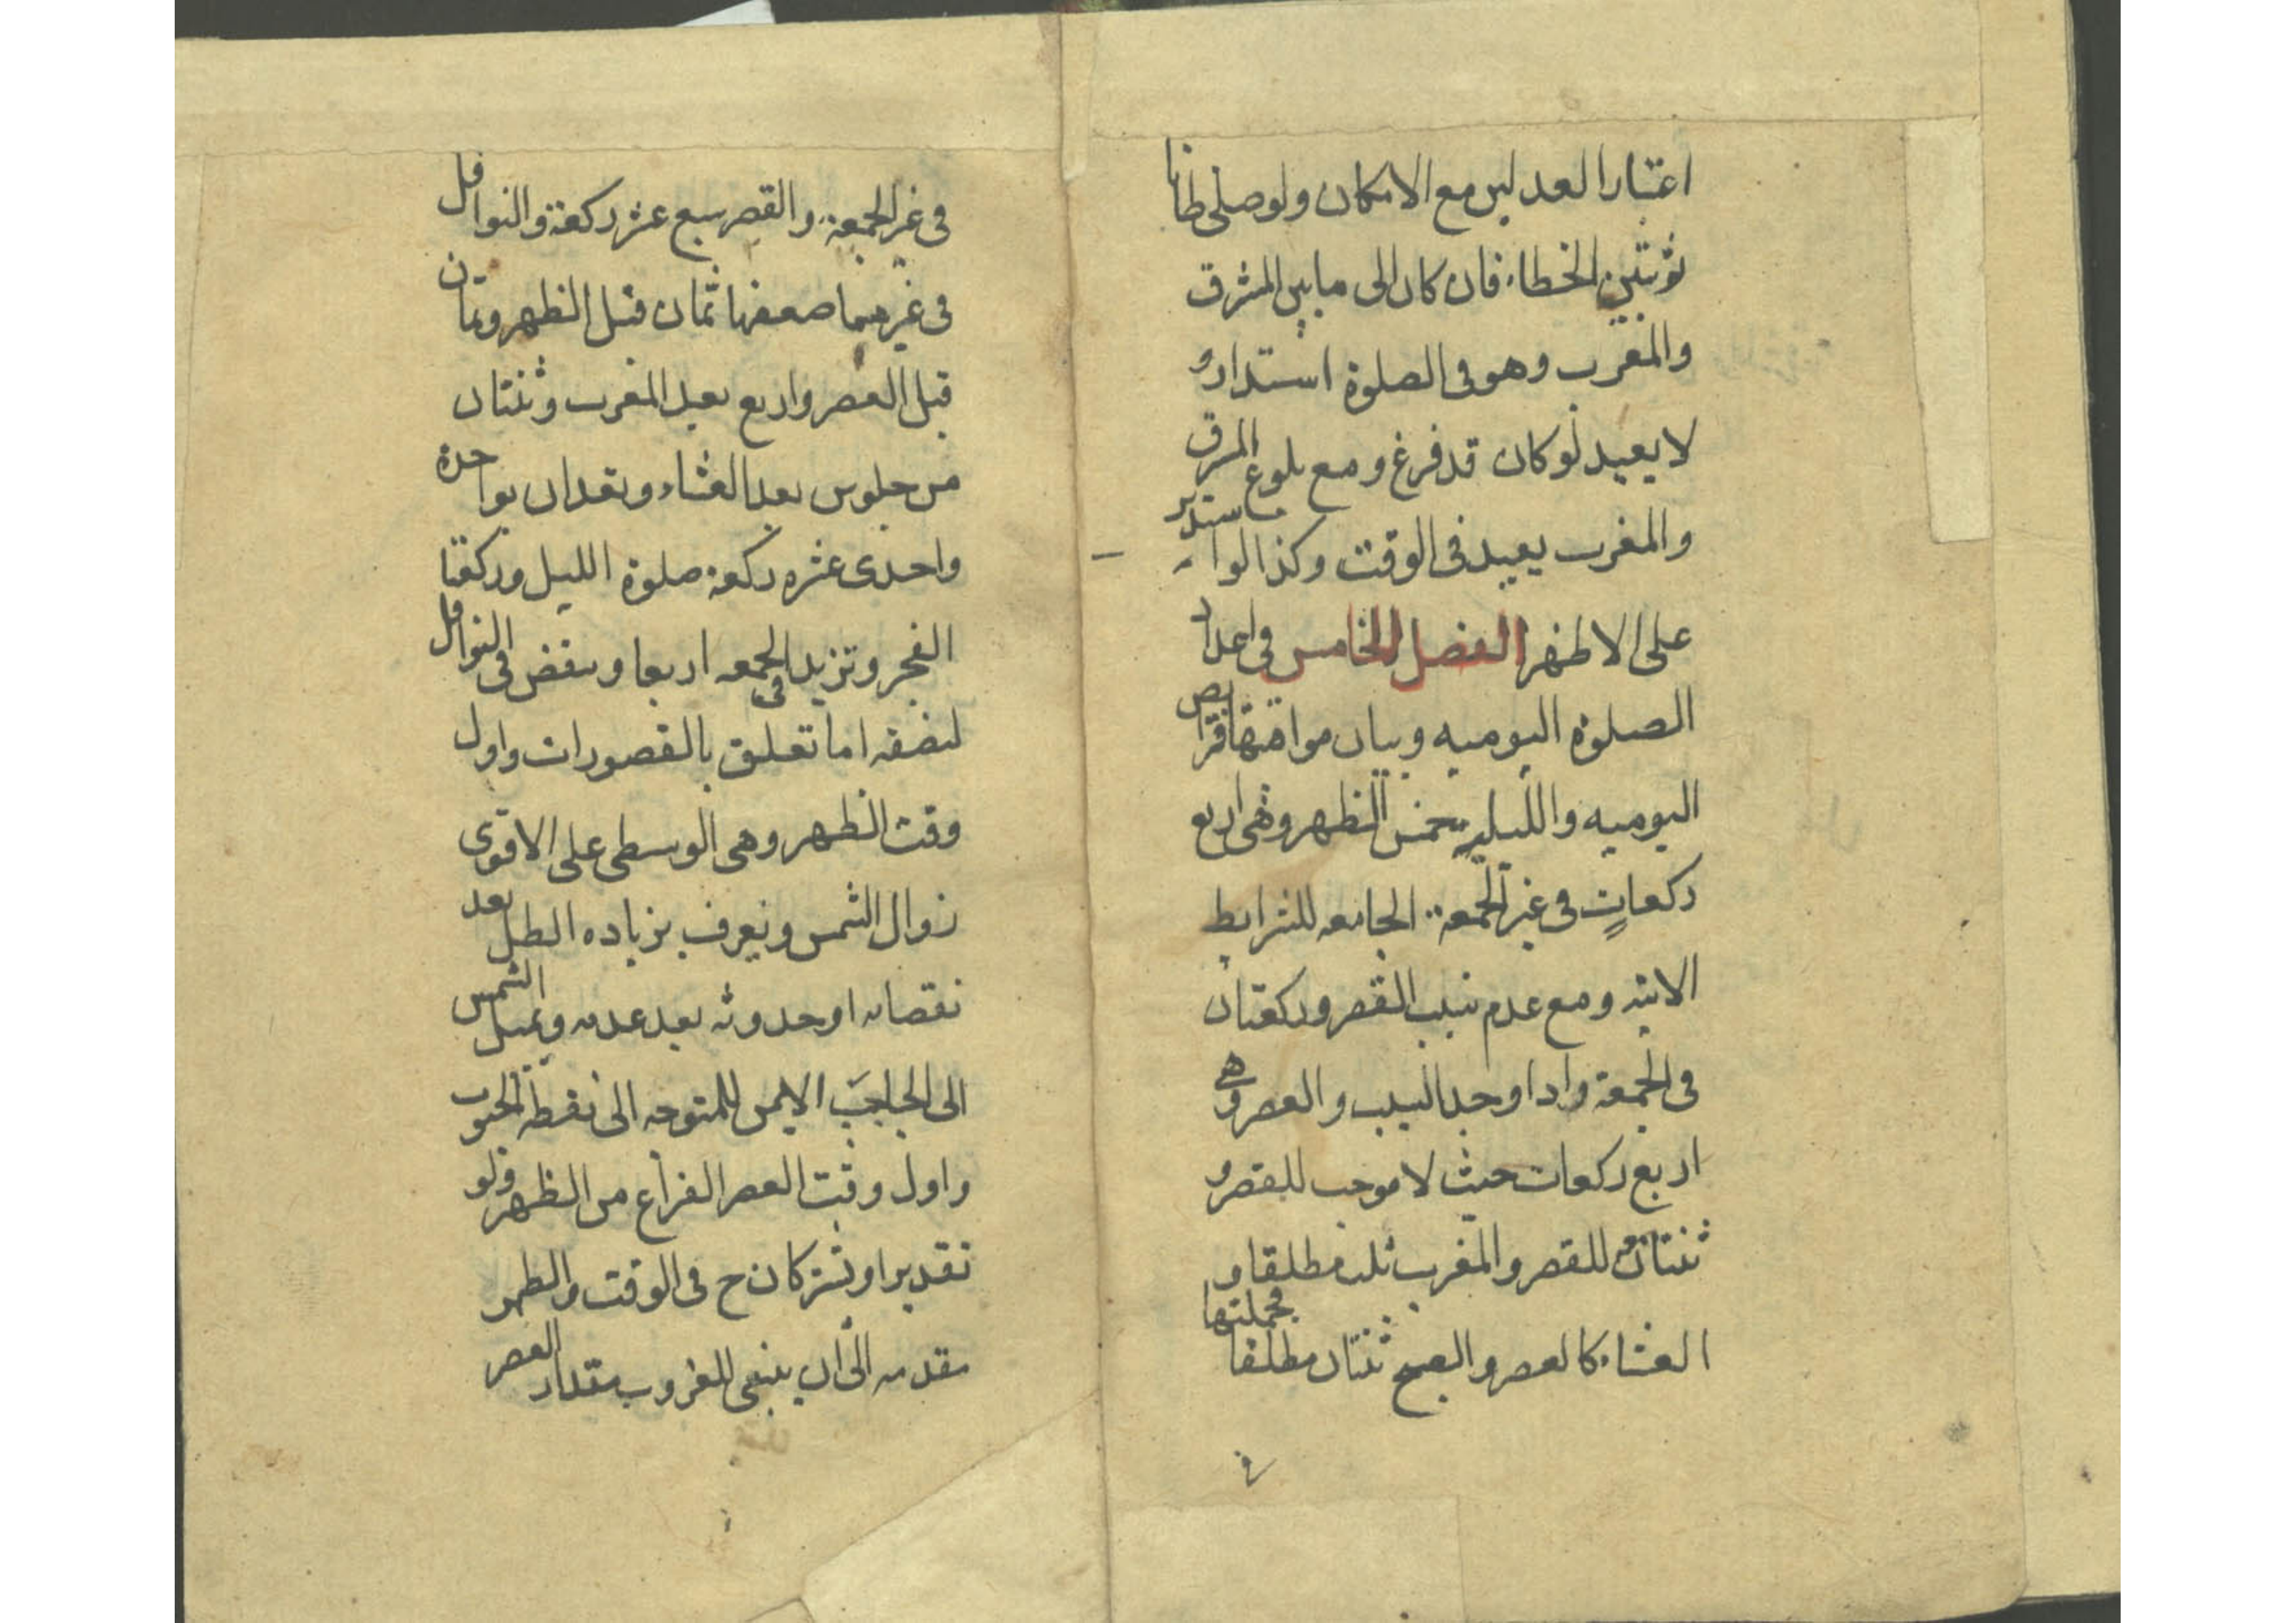 اعتبار العدلين مع الامكان ولو صلى ظانا
ثم تبين الخطاء فان كان الى ما بين المشرق
والمغرب وهو فى الصلوة استدار و
لا يعيد لو كان قد فرغ ومع بلوغ المشرق
والمغرب يعيد فى الوقت وكذا لو استدبر
على الاظهر الفصل الخامس فى اعداد
الصلوة اليوميه وبيان مواقيتها فرايض
اليوميه والليليه خمس الظهر وهى اربع
ركعاتٍ فى غير الجمعة الجامعه للشرايط
الاتيه ومع عدم سبب القصر وركعتان
فى الجمعة واذا وجد السبب والعصر وهى
اربع ركعات حيث لا موجب للقصر و
ثنتان معه للقصر والمغرب ثلث مطلقا و
العشاء كالعصر والصبح ثنتان مطلقا فجملتها
فى غير الجمعة والقصر سبع عشر ركعة والنوافل
فى غيرهما ضعفها ثمان قبل الظهر وثمان
قبل العصر واربع بعد المغرب وثنتان
من جلوس بعد العشاء وتعدان بواحدة
واحدى عشره ركعة صلوة الليل وركعتا
الفجر وتزيد فى الجمعه اربعا وينقض فى النوافل
لنصفه اما تعلق بالقصورات واول
وقت الظهر وهى الوسطى على الاقوى
زوال الشمس ويعرف بزياده الظل بعد
نقصانه او حدوثه بعد عدمه وبميل الشمس
الى الحاجبَ الايمن للمتوجه الى نقطه الجنوب
واول وقت العصر الفراغ من الظهر ولو
تقديرا ويشتركان ح فى الوقت والظهر
مقدمه الى ان يبقى للغروب مقدار العصر